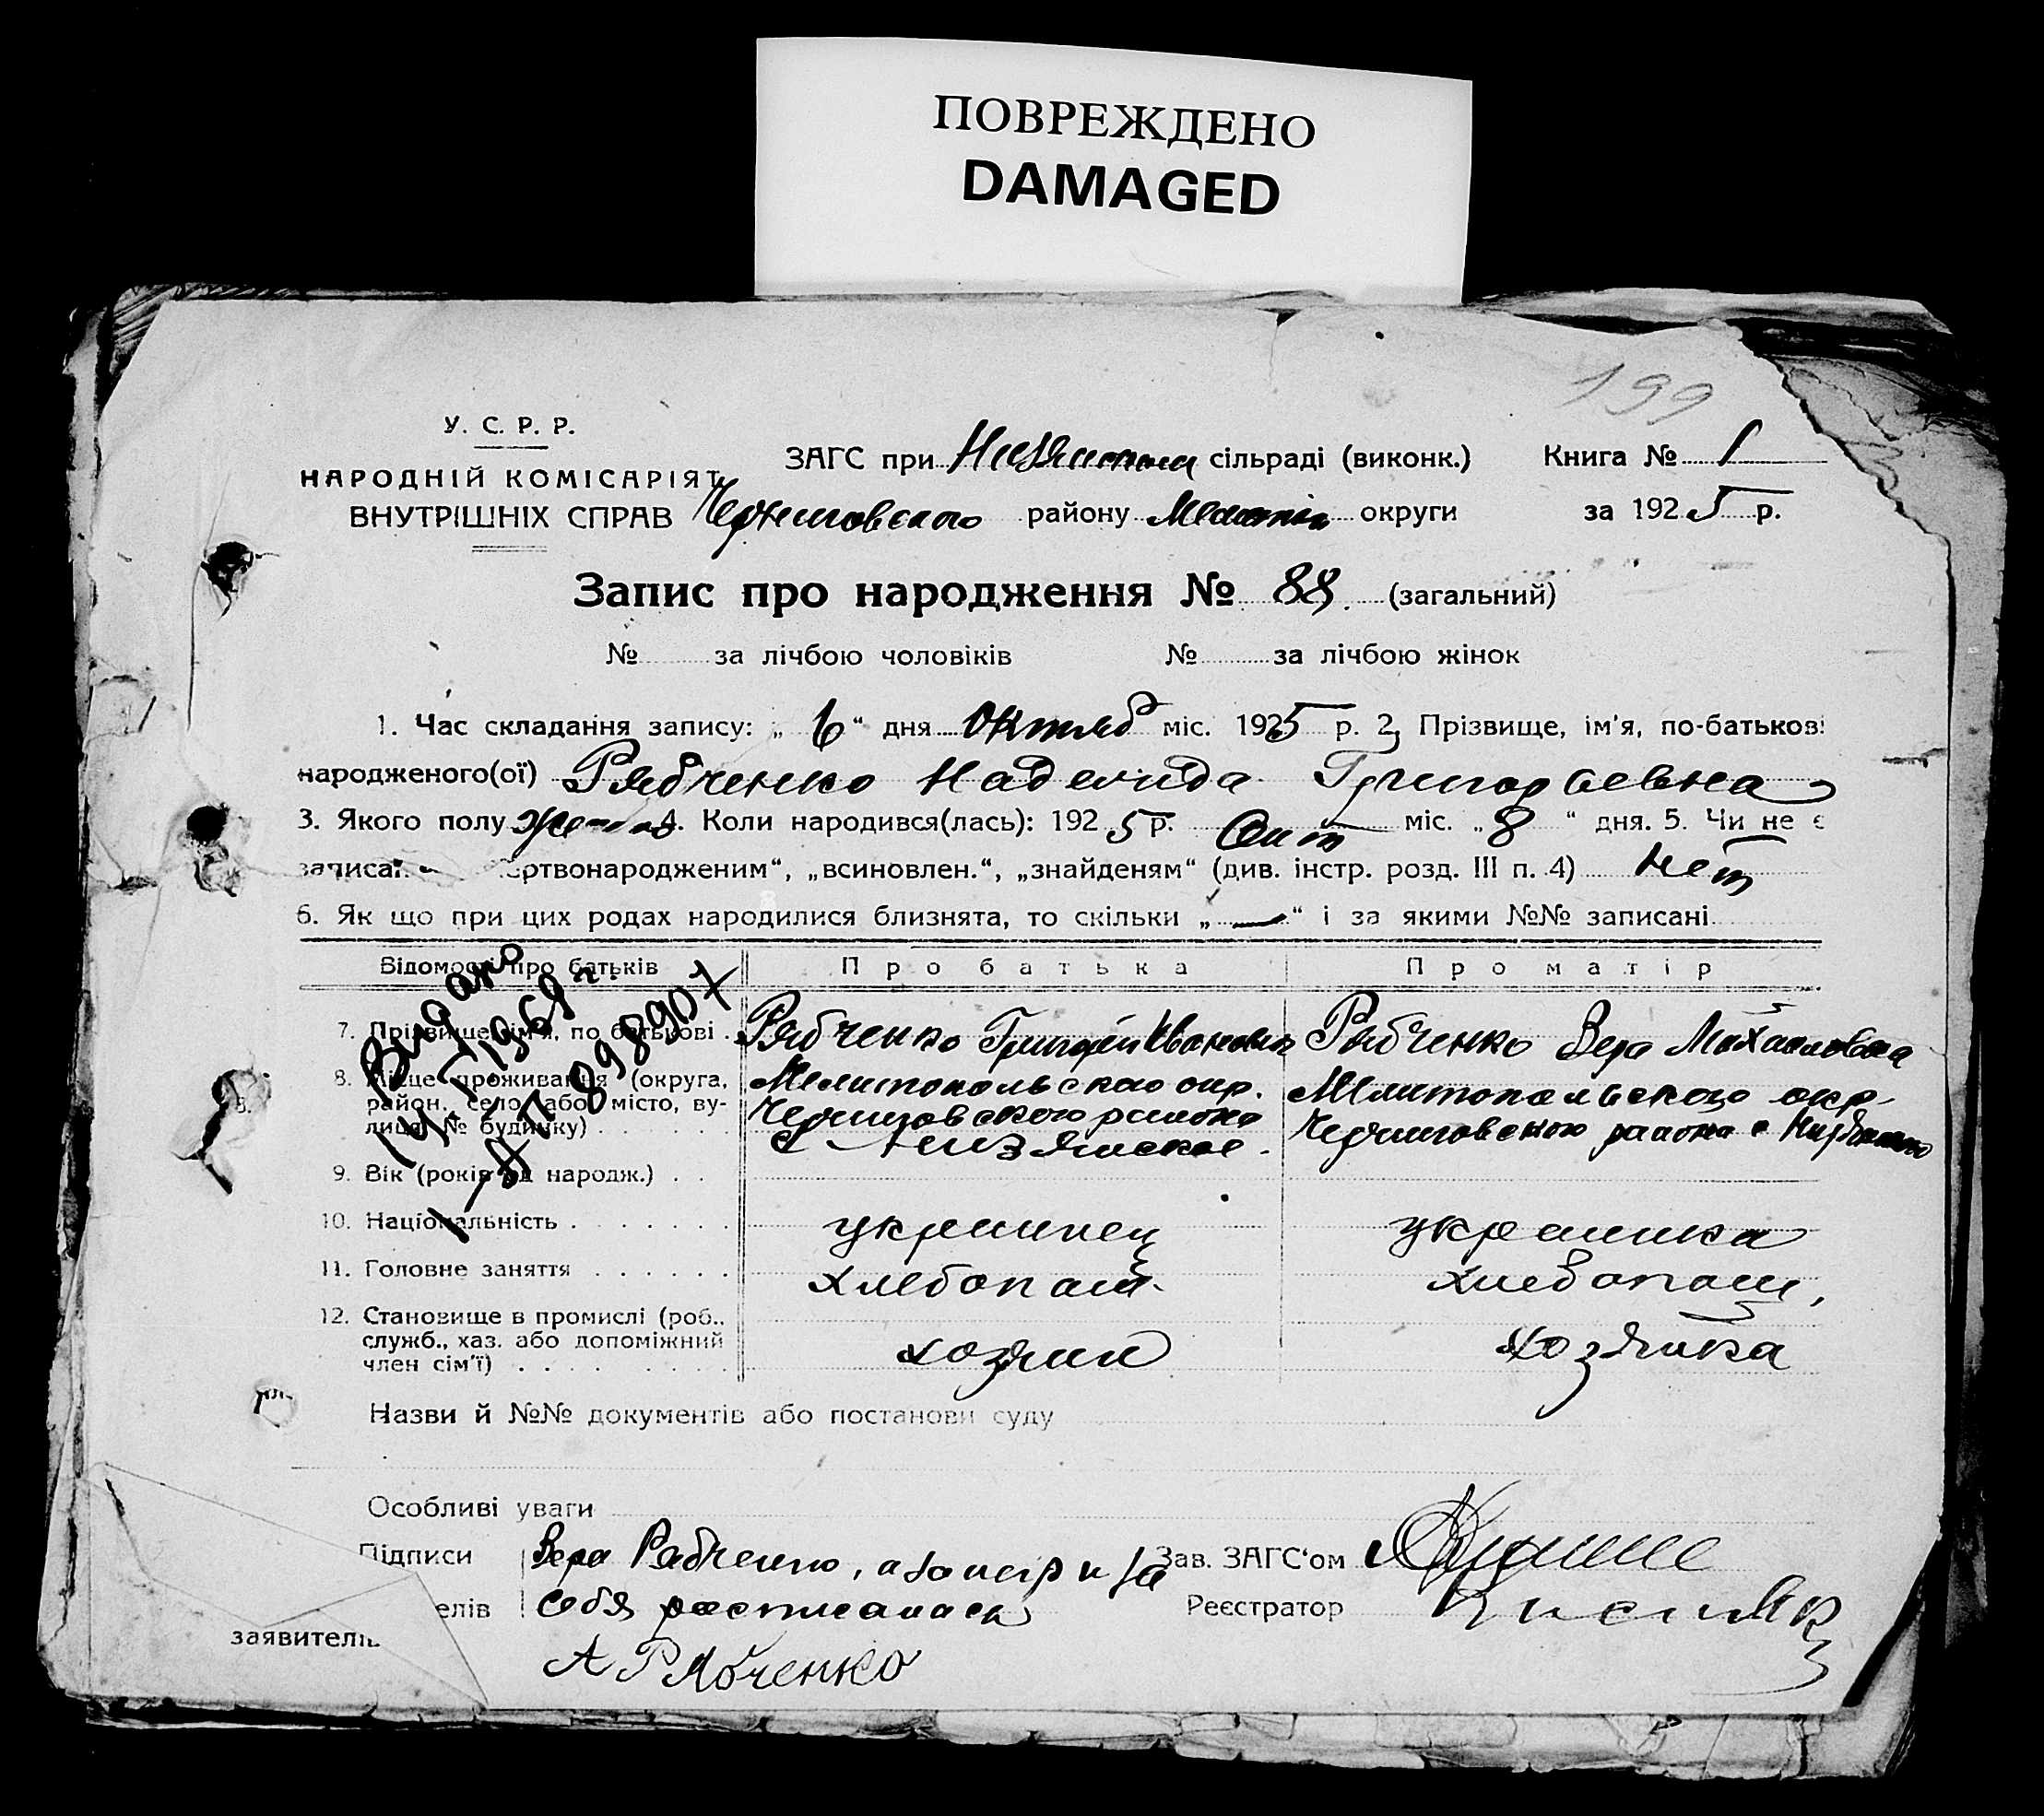 ПОВРЕЖДЕНО
DAMAGED
199
У. С. Р. Р.
НАРОДНІЙ КОМІСАРІЯТ
ВНУТРІШНІХ СПРАВ
ЗАГС при сільраді (виконк.) Книга № 1
Черниговского району округи за 1925 р.
Запис про народження № 88. (загальний)
№ за лічбою чоловіків № за лічбою жінок
1. Час складання запису: „ 6 “ дня октяб міс. 1925 р. 2. Прізвище, ім'я, по-батькові
народженого(ої) Рябченко Надежда Григорьевна
3. Якого полу 4. Коли народився(лась): 1925 р. міс. „ 8 “ дня. 5. Чи не є
записан ертвонародженим“, „всиновлен.“, „знайденям“ (див. інстр. розд. III п. 4) нет
6. Як що при цих родах народилися близнята, то скільки „ — “ і за якими №№ записані
Відомості про батьків Про батька Про матір
7. Прізвище, ім'я, по батькові . Рябченко Григорий Иванович Рябченко Вера Михайловна
8. Місце проживання (округа, район, село, або місто, вулиця, № будинку) . . . . .
Мелитопольского окр.
Черниговского района
с Низянское.
Мелитопольского окр.
Черниговского района с
9. Вік (років від народж.) . .
10. Національність . . . . . . . украинец украинка
11. Головне заняття . . . . . . хлебопаш. хлебопаш,
12. Становище в промислі (роб., служб., хаз. або допоміжний член сім'ї) . . . . . . . хозяин хозяйка
Видано
14.II 1968 г.
I-АП 898907
Назви й №№ документів або постанови суду
Особливі уваги
Підписи Вера Рябченко, а за и за Зав. ЗАГС'ом
елів себя расписалась Реєстратор
заявителів
А Рябченко